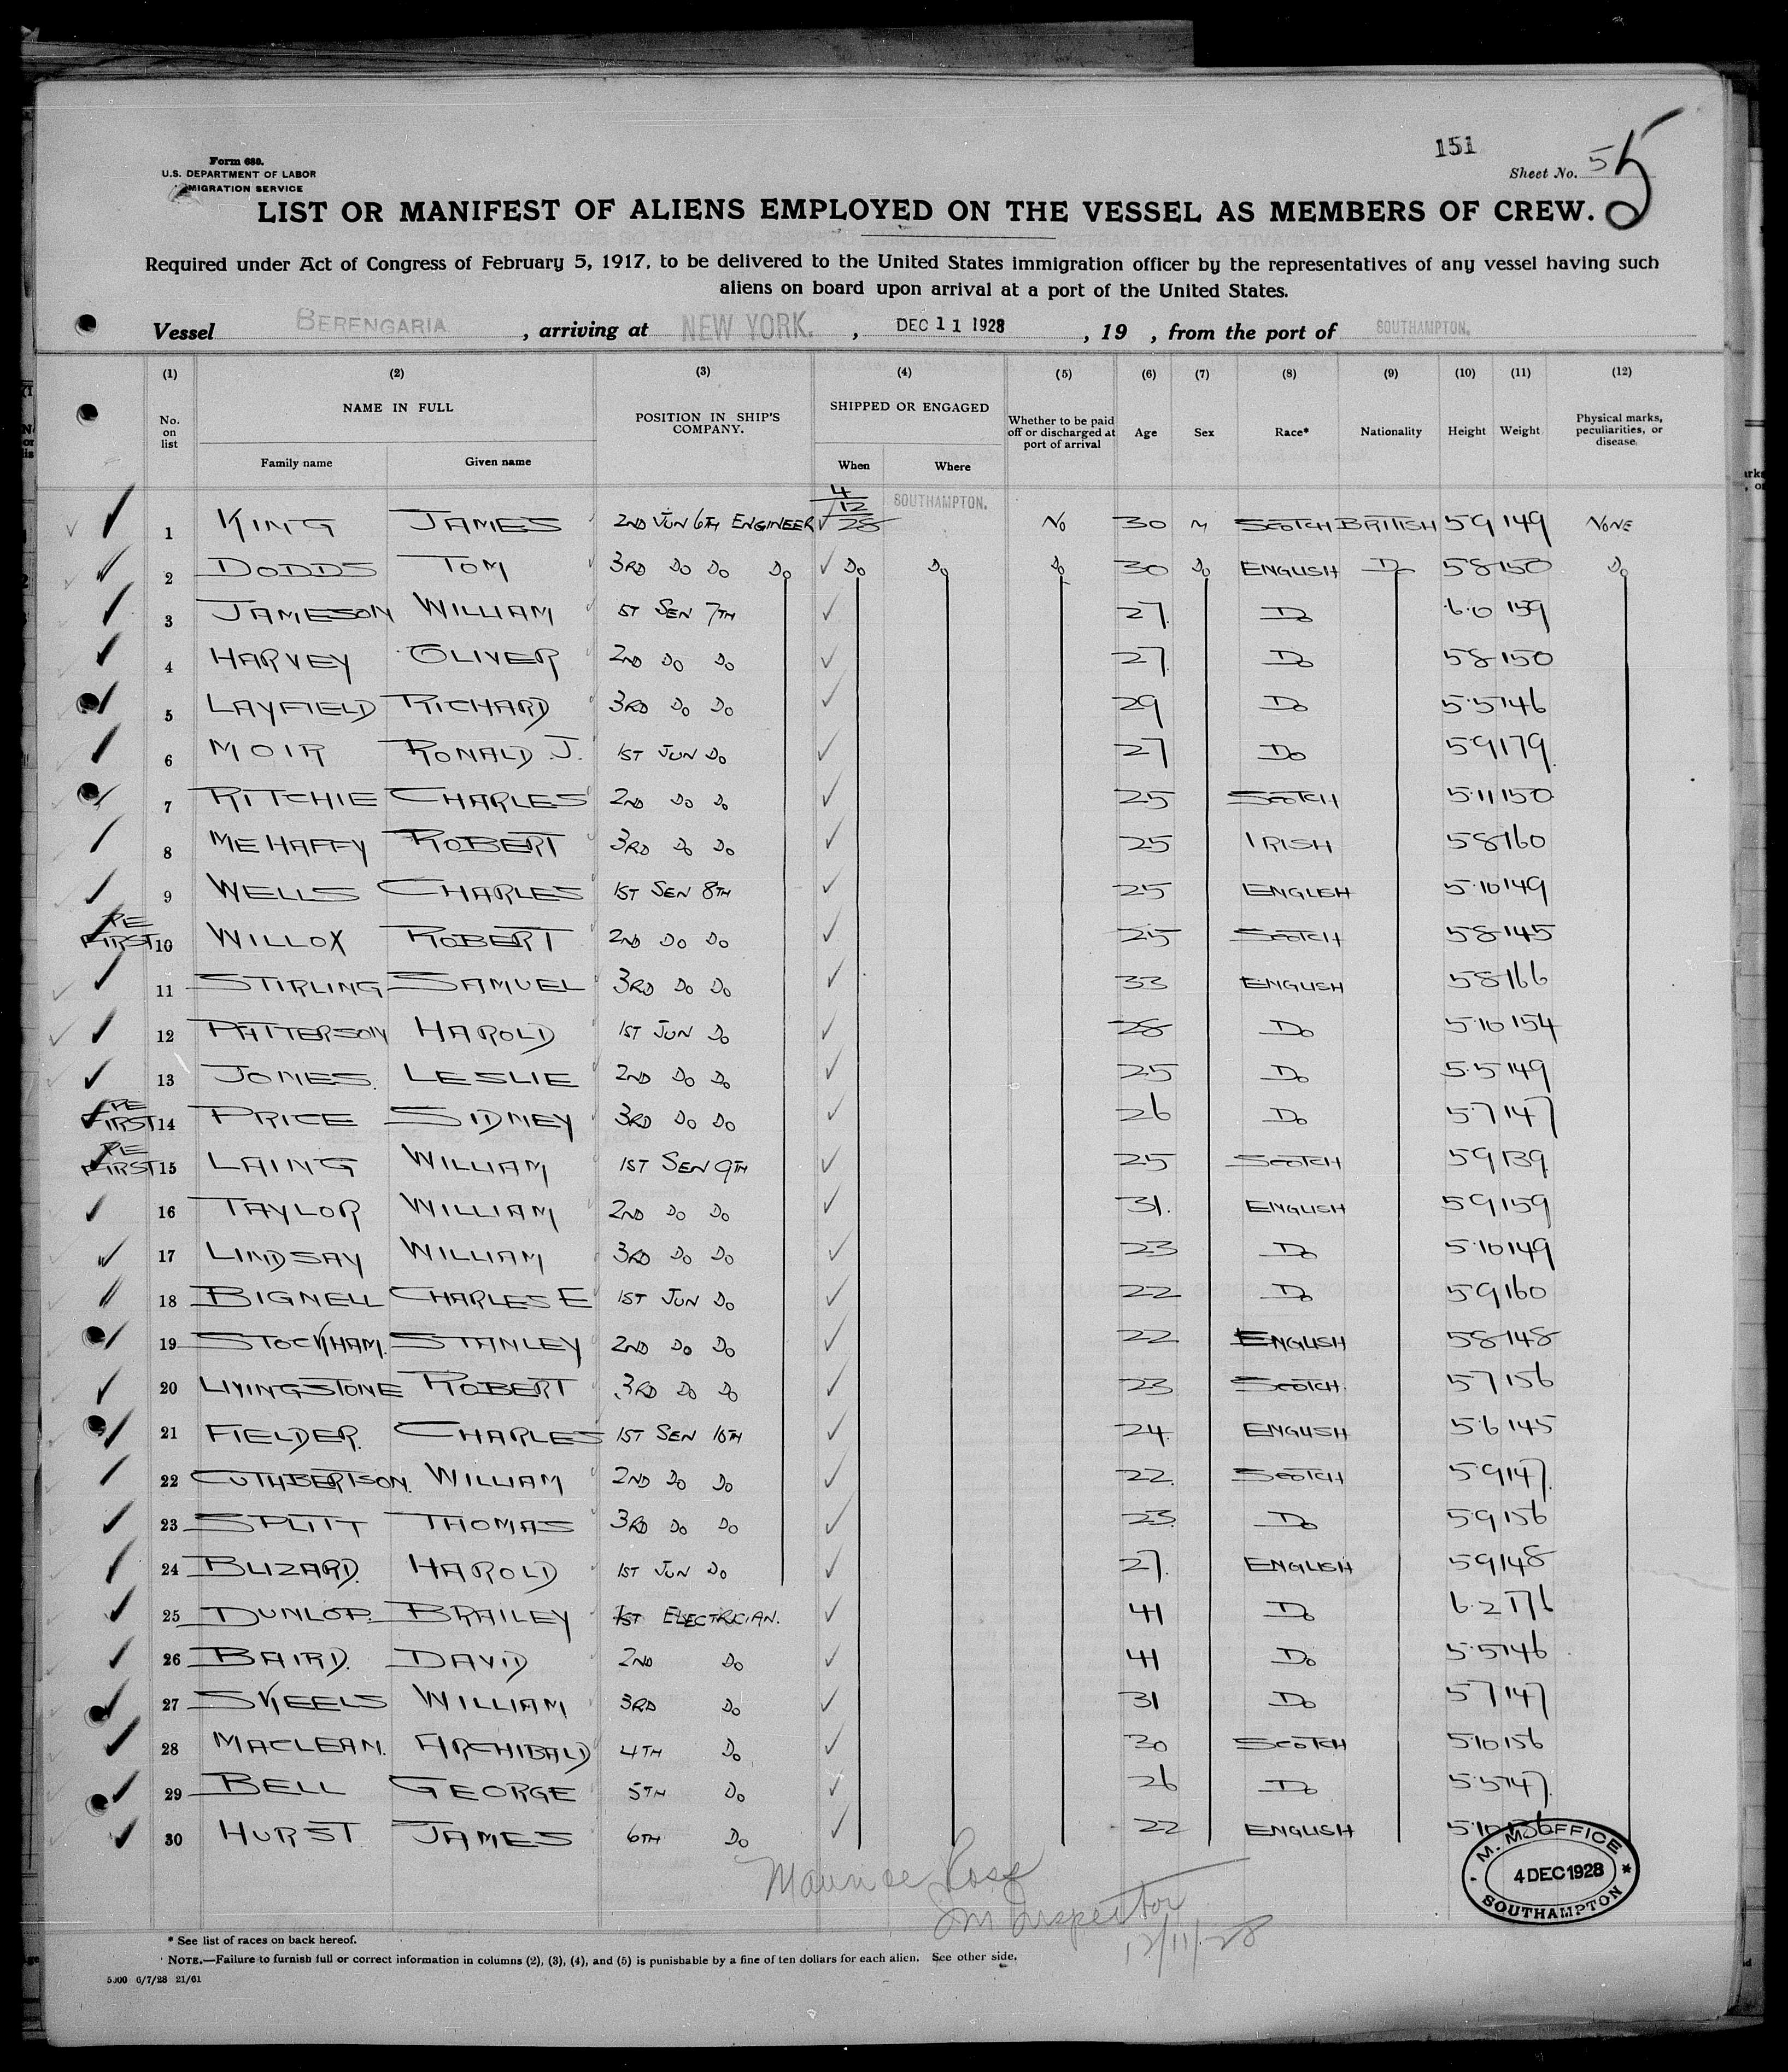 151
Form 680.
U.S. DEPARTMENT OF LABOR
MIGRATION SERVICE
Sheet No. 5
5
LIST OR MANIFEST OF ALIENS EMPLOYED ON THE VESSEL AS MEMBERS OF CREW.
Required under Act of Congress of February 5, 1917, to be delivered to the United States immigration officer by the representatives of any vessel having such
aliens on board upon arrival at a port of the United States.
Vessel BERENGARIA, arriving at NEW YORK., DEC 11 1928, 19 , from the port of SOUTHAMPTON.
(1) (2) (3) (4) (5) (6) (7) (8) (9) (10) (11) (12)
No. on list NAME IN FULL Family name Given name POSITION IN SHIP'S COMPANY. SHIPPED OR ENGAGED When Where Whether to be paid off or discharged at port of arrival Age Sex Race* Nationality Height Weight Physical marks, peculiarities, or disease.
1 KING JAMES 2ND JUN 6TH ENGINEER 4/12/28 SOUTHAMPTON. NO 30 M SCOTCH BRITISH 5 9 149 NONE
2 DODDS TOM 3RD DO DO DO DO DO DO 30 DO ENGLISH DO 5 8 150 DO
3 JAMESON WILLIAM 1ST SEN 7TH 27 DO 6.0 159
4 HARVEY OLIVER 2ND DO DO 27 DO 5 8 150
5 LAYFIELD RICHARD 3RD DO DO 29 DO 5.5 146
6 MOIR RONALD J. 1ST JUN DO 27 DO 5 9 179
7 RITCHIE CHARLES 2ND DO DO 25 SCOTCH 5.11 150
8 MEHAFFY ROBERT 3RD DO DO 25 IRISH 5 8 160
9 WELLS CHARLES 1ST SEN 8TH 25 ENGLISH 5.10 149
RE FIRST 10 WILLOX ROBERT 2ND DO DO 25 SCOTCH 5 8 145
11 STIRLING SAMUEL 3RD DO DO 33 ENGLISH 5 8 166
12 PATTERSON HAROLD 1ST JUN DO 28 DO 5.10 154
13 JONES LESLIE 2ND DO DO 25 DO 5.5 149
RE FIRST 14 PRICE SIDNEY 3RD DO DO 26 DO 5.7 147
RE FIRST 15 LAING WILLIAM 1ST SEN 9TH 25 SCOTCH 5 9 139
16 TAYLOR WILLIAM 2ND DO DO 31. ENGLISH 5 9 159
17 LINDSAY WILLIAM 3RD DO DO 23 DO 5.10 149
18 BIGNELL CHARLES E 1ST JUN DO 22 DO 5 9 160
19 STOCKHAM. STANLEY 2ND DO DO 22 ENGLISH 5 8 148
20 LIVINGSTONE ROBERT 3RD DO DO 23 SCOTCH 5 7 156
21 FIELDER. CHARLES 1ST SEN 10TH 24 ENGLISH 5.6 145
22 CUTHBERTSON. WILLIAM 2ND DO DO 22 SCOTCH 5 9 147
23 SPLITT THOMAS 3RD DO DO 23 DO 5.9 156
24 BLIZARD. HAROLD 1ST JUN DO 27. ENGLISH 5 9 148
25 DUNLOP BRAILEY 1ST ELECTRICIAN. 41 DO 6.2 176
26 BAIRD. DAVID 2ND DO 41 DO 5.5 146
27 SKEELS WILLIAM 3RD DO 31 DO 5 7 147
28 MACLEAN. ARCHIBALD 4TH DO 30 SCOTCH 5.10 156
29 BELL GEORGE 5TH DO 26 DO 5.5 147
30 HURST JAMES 6TH DO 22 ENGLISH 5.10 156
M. M. OFFICE
4 DEC 1928
SOUTHAMPTON
Maurice Rose
Im Inspector
12/11/28
* See list of races on back hereof.
NOTE.—Failure to furnish full or correct information in columns (2), (3), (4), and (5) is punishable by a fine of ten dollars for each alien. See other side.
5000 6/7/28 21/61